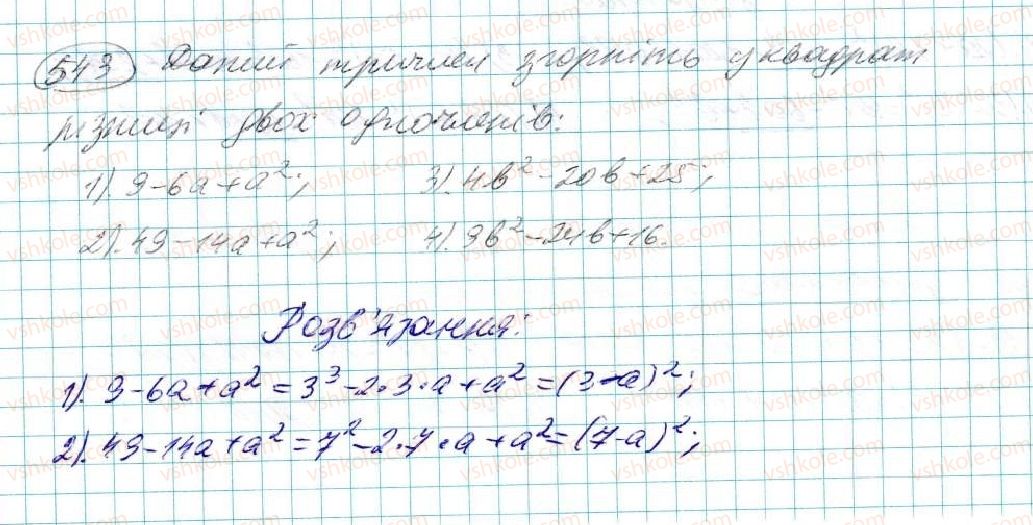 543 Даний тричлен згорніть у квадрат
різниці двох одночленів:
1). 9-6a+a²; 3). 4b²-20b+25;
2). 49-14a+a²; 4). 9b²-24b+16.
Розв'язання:
1). 9-6a+a² = 3³-2·3·a+a² = (3-a)²;
2). 49-14a+a² = 7²-2·7·a+a² = (7-a)²;